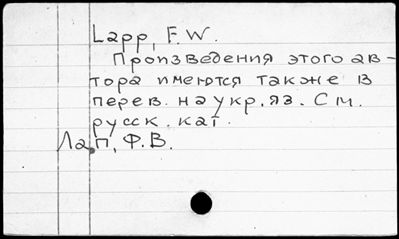 Lapp, F.W.
Произведения этого ав-
тора имеются также в
перев. на укр. яз. См.
русск. кат.
Лап, Ф.В.